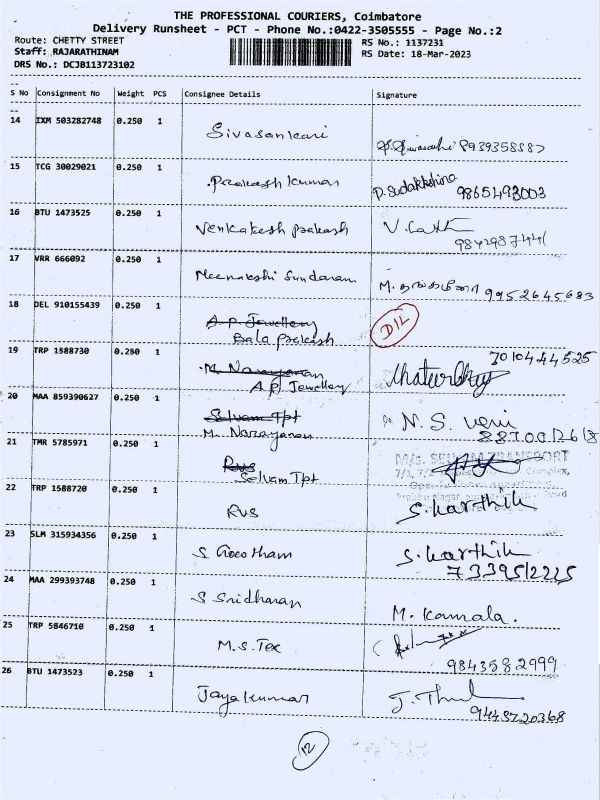 THE PROFESSIONAL COURIERS, Coimbatore
Delivery Runsheet - PCT - Phone No.:0422-3505555 - Page No.:2
Route: CHETTY STREET RS No.: 1137231
Staff: RAJARATHINAM RS Date: 18-Mar-2023
DRS No.: DCJB113723102
S No Consignment No Weight PCS Consignee Details Signature
14 IXM 503282748 0.250 1 Sivasankari 8939358587
15 TCG 30029021 0.250 1 Prakash kumar P. Sudakkshina 9865493003
16 BTU 1473525 0.250 1 Venkatesh prakash V.
17 VRR 666092 0.250 1 Meenakshi Sundaram M. 9952645683
18 DEL 910155439 0.250 1 A.P. Jewellery DIL
Bala prakash
19 TRP 1588730 0.250 1 M. Narayanan 7010444525
A.P. Jewellery
20 MAA 859390627 0.250 1 Selvam Tpt N.S. veni
M. Narayanan 8870012618
21 TMR 5785971 0.250 1 RVS M/s. SELVAM TRANSPORT
Selvam Tpt Complex,
22 TRP 1588720 0.250 1 RVS S. karthik
23 SLM 315934356 0.250 1 S Gowtham S. karthik
7339512225
24 MAA 299393748 0.250 1 S Sridharan M. Kamala.
25 TRP 5846710 0.250 1 M.S. Tex
9843582999
26 BTU 1473523 0.250 1 Jayakumar J.
9443720368
12